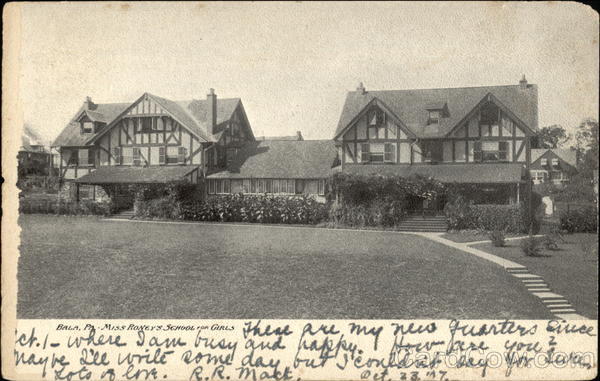 BALA, PA. - MISS RONEY'S SCHOOL FOR GIRLS These are my new quarters since
Oct. 1 - where I am busy and happy. How are you?
Maybe I'll write some day but I couldn't say for sure.
Lots of love. R. R. Mact. Oct. 23 '07.
CardCow.com